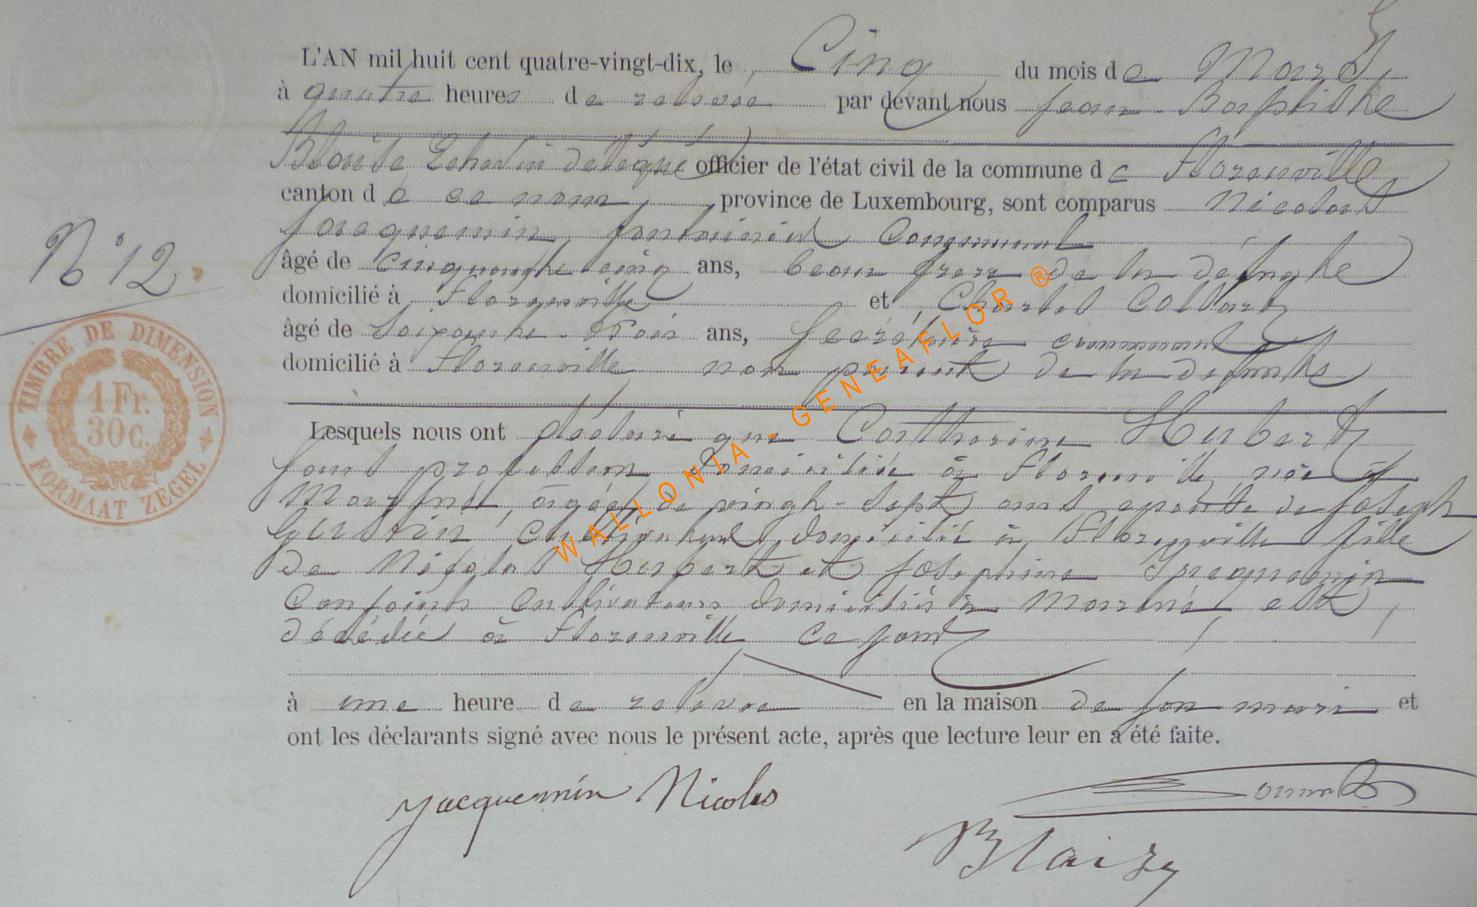 L'AN mil huit cent quatre-vingt-dix, le Cinq du mois de Mars,
à quatre heures de relevée par devant nous Jean-Baptiste
Blaise Echevin délégué officier de l'état civil de la commune de Florenville
canton de ce nom, province de Luxembourg, sont comparus Nicolas
Jacquemin, communal
âgé de Cinquante cinq ans, beau frère de la défunte
domicilié à Florenville et Charles
âgé de Soixante-Trois ans, Secrétaire communal
domicilié à Florenville non parent de la défunte
Lesquels nous ont déclaré que Catherine Hubert
sans profession domiciliée à Florenville née à
âgée de vingt-sept ans épouse de Joseph
cultivateur, domicilié à Florenville fille
de Nicolas Hubert et Joséphine Jacquemin
Conjoints Cultivateurs domiciliés à est
décédée à Florenville ce jour
à une heure de relevée en la maison de son mari et
ont les déclarants signé avec nous le présent acte, après que lecture leur en a été faite.
Jacquemin Nicolas
Blaise
N° 12.
TIMBRE DE DIMENSION
1 Fr.
30 c.
FORMAAT ZEGEL
WALLONIA - GENEAFLOR ®